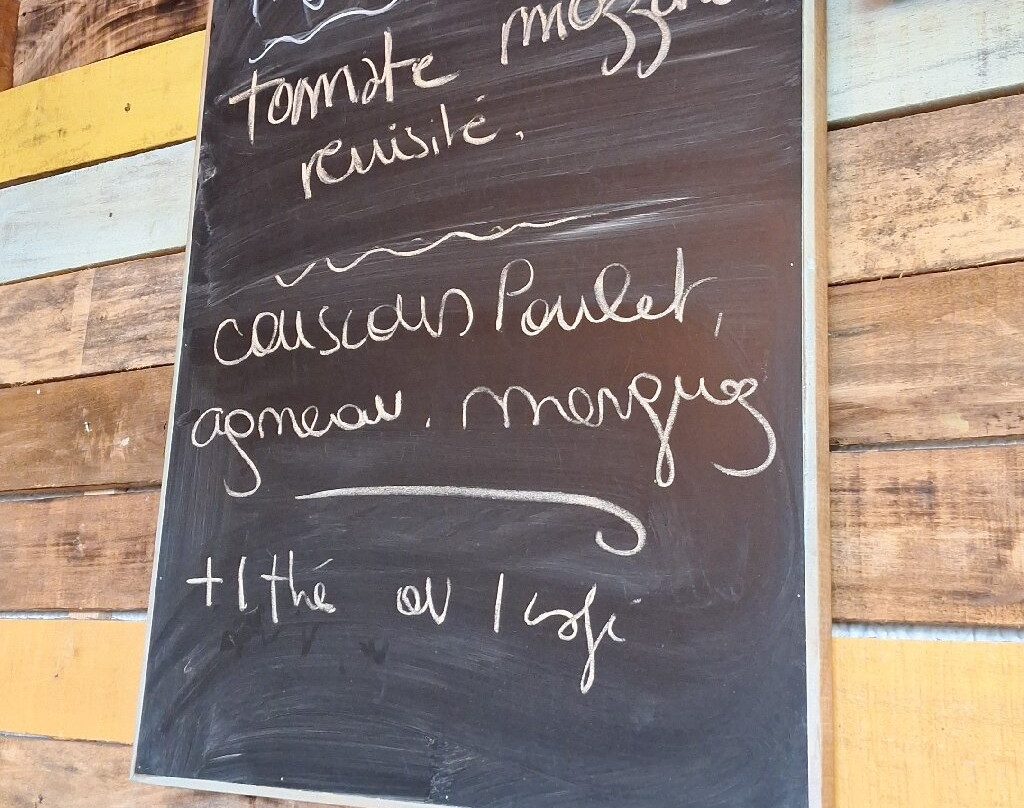 tomate
revisité.
couscous Poulet,
agneau. merguez
+ 1 thé ou 1 café